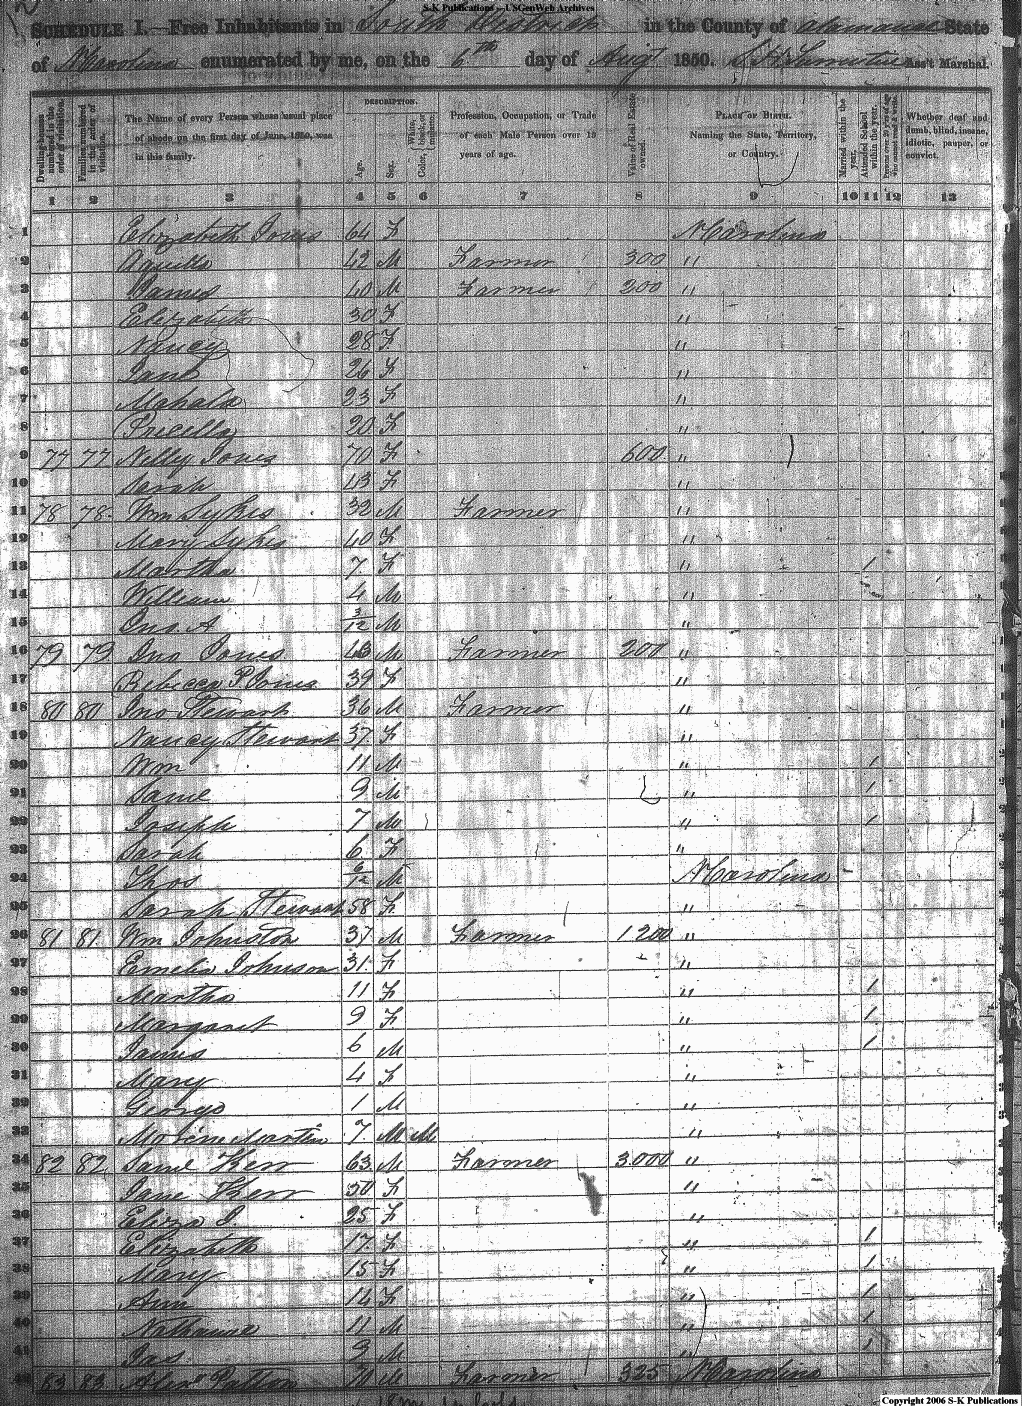 S-K Publications - USGenWeb Archives
SCHEDULE I.—Free Inhabitants in South District in the County of Alamance State
of N Carolina enumerated by me, on the 6th day of Aug 1850. Ass't Marshal.
Dwelling-houses numbered in the order of visitation.
Families numbered in the order of visitation.
The Name of every Person whose usual place of abode on the first day of June, 1850, was in this family.
DESCRIPTION.
Age.
Sex.
White, black, or mulatto.
Color,
Profession, Occupation, or Trade of each Male Person over 15 years of age.
Value of Real Estate owned.
PLACE OF BIRTH.
Naming the State, Territory, or Country.
Married within the year.
Attended School within the year.
Persons over 20 y'rs of age who cannot read & write.
Whether deaf and dumb, blind, insane, idiotic, pauper, or convict.
1 2 3 4 5 6 7 8 9 10 11 12 13
1 Elizabeth Jones 64 F N Carolina
2 Aquilla 42 M Farmer 300 "
3 James 40 M Farmer 200 "
4 Elizabeth 30 F "
5 Nancy 28 F "
6 Jane 26 F "
7 Mahala 23 F "
8 Precilla 20 F "
9 77 77 Nelly Jones 70 F 600 "
10 Sarah 43 F "
11 78 78 Wm Sykes 32 M Farmer "
12 Mary Sykes 40 F "
13 Martha 7 F " 1
14 William 4 M "
15 Jno. A 3/12 M "
16 79 79 Jno Jones 43 M Farmer 200 "
17 Rebecca P Jones 39 F "
18 80 80 Jno Stewart 36 M Farmer "
19 Nancy Stewart 37 F "
20 Wm 11 M " 1
21 Saml 9 M " 1
22 Joseph 7 M " 1
23 Sarah 6 F "
24 Thos 6/12 M N Carolina
25 Sarah Stewart 58 F "
26 81 81 Wm Johnston 37 M Farmer 1200 "
27 Emelia Johnson 31 F "
28 Martha 11 F " 1
29 Margaret 9 F " 1
30 James 6 M " 1
31 Mary 4 F "
32 George 1 M "
33 Martin 7 M M "
34 82 82 Saml Kerr 63 M Farmer 3000 "
35 Jane Kerr 50 F "
36 Eliza J. 25 F "
37 Elizabeth 17 F " 1
38 Mary 15 F " 1
39 Ann 14 F " 1
40 Nathaniel 11 M " 1
41 Jas 9 M " 1
42 83 83 Alexr Patton 70 M Farmer 325 N Carolina
Copyright 2006 S-K Publications